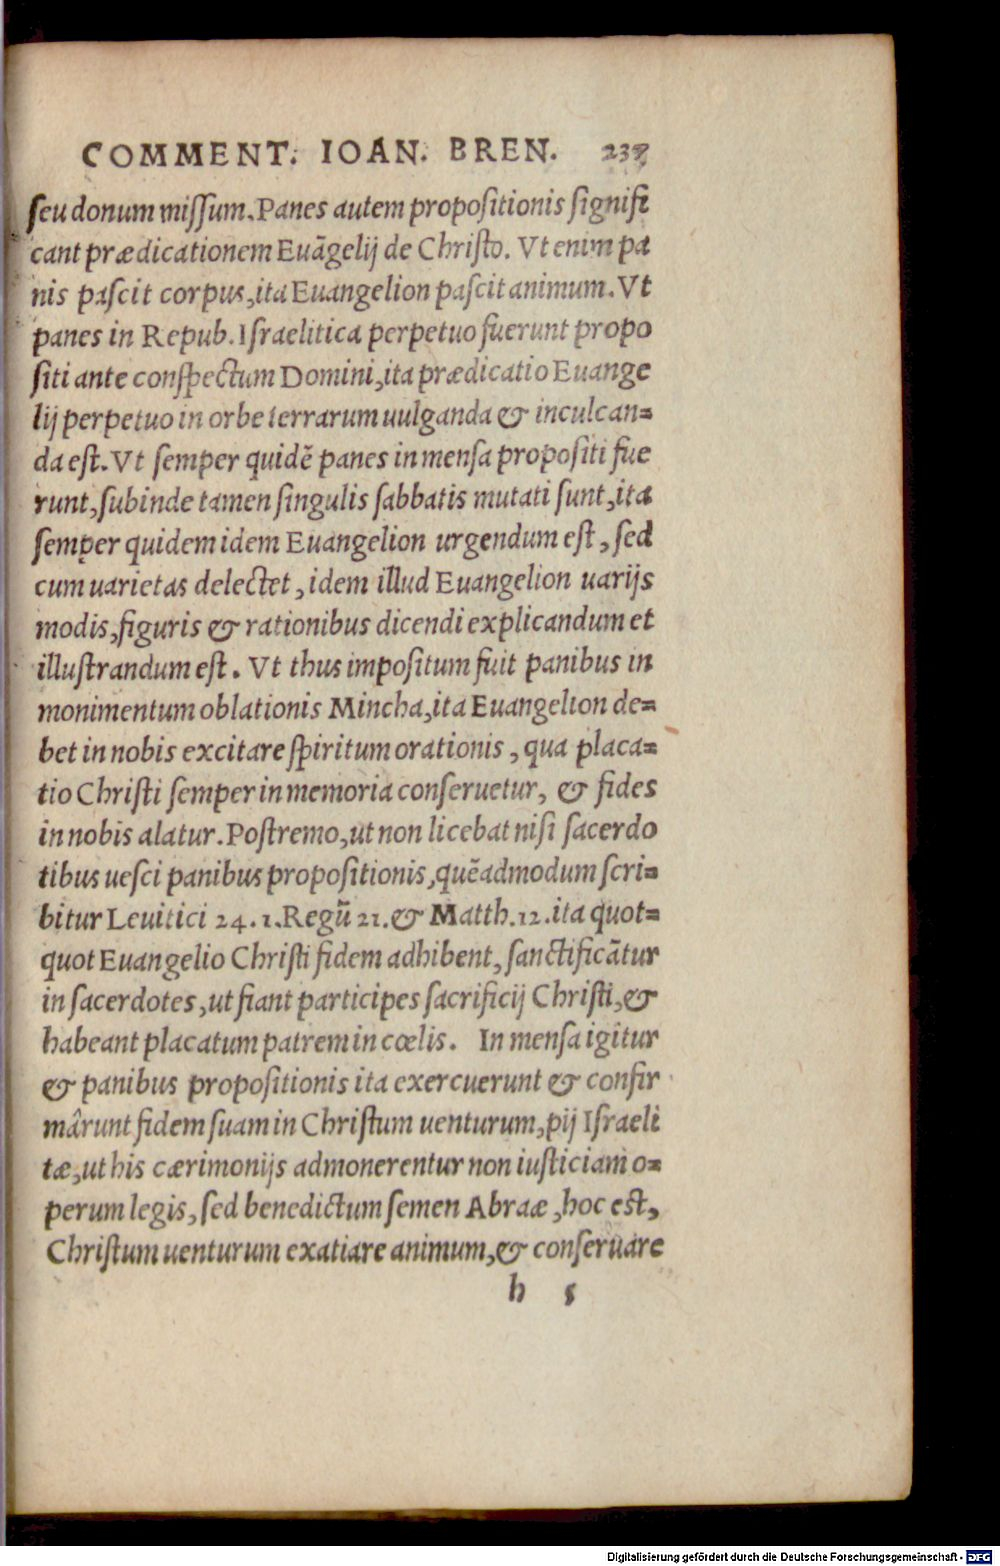 COMMENT. IOAN. BREN. 237
seu donum missum. Panes autem propositionis signifi
cant prædicationem Euāgelij de Christo. Vt enim pa
nis pascit corpus, ita Euangelion pascit animum. Vt
panes in Repub. Israelitica perpetuo fuerunt propo
siti ante conspectum Domini, ita prædicatio Euange
lij perpetuo in orbe terrarum uulganda & inculcan=
da est. Vt semper quidē panes in mensa propositi fue
runt, subinde tamen singulis sabbatis mutati sunt, ita
semper quidem idem Euangelion urgendum est, sed
cum uarietas delectet, idem illud Euangelion uarijs
modis, figuris & rationibus dicendi explicandum et
illustrandum est. Vt thus impositum fuit panibus in
monimentum oblationis Mincha, ita Euangelion de=
bet in nobis excitare spiritum orationis, qua placa=
tio Christi semper in memoria conseruetur, & fides
in nobis alatur. Postremo, ut non licebat nisi sacerdo
tibus uesci panibus propositionis, quēadmodum scri=
bitur Leuitici 24. 1. Regū 21. & Matth. 12. ita quot=
quot Euangelio Christi fidem adhibent, sanctificātur
in sacerdotes, ut fiant participes sacrificij Christi, &
habeant placatum patrem in cœlis. In mensa igitur
& panibus propositionis ita exercuerunt & confir
mârunt fidem suam in Christum uenturum, pij Israeli
tæ, ut his cærimonijs admonerentur non iusticiam o=
perum legis, sed benedictum semen Abraæ, hoc est,
Christum uenturum exatiare animum, & conseruare
h 5
Digitalisierung gefördert durch die Deutsche Forschungsgemeinschaft - DFG